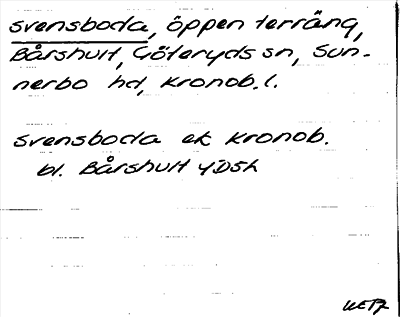 Svensboda, öppen terräng,
Bårshult, Göteryds sn, Sun-
nerbo hd, Kronob. l.
Svensboda ek Kronob.
bl. Bårshult YD5h